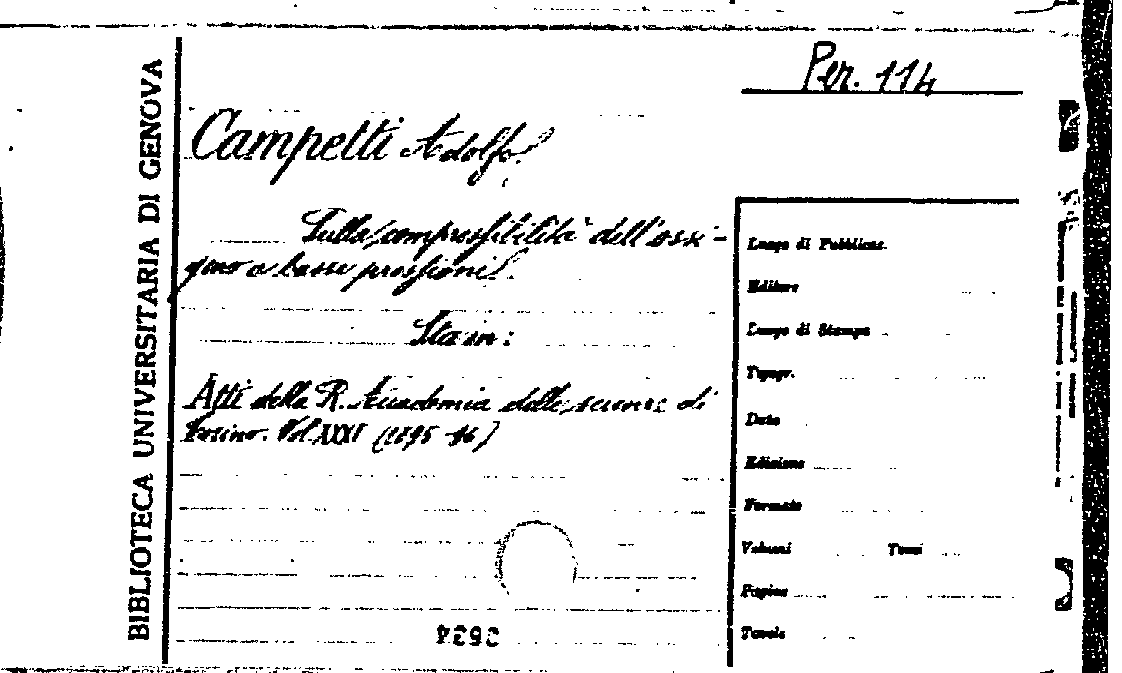 Per. 114
BIBLIOTECA UNIVERSITARIA DI GENOVA
Campetti Adolfo.
Sulla compressibilità dell'ossi-
geno a basse pressioni.
Sta in:
Atti della R. Accademia delle scienze di
Torino. Vol XXXI (1895-96)
Luogo di Pubblicaz.
Editore
Luogo di Stampa
Topogr.
Data
Edizione
Formato
Volumi Tomi
Pagine
Tavole